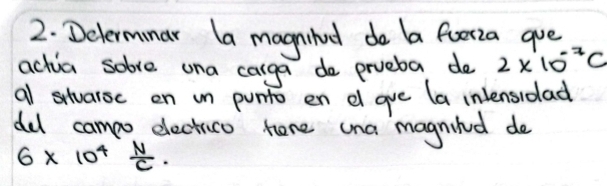 2. Determinar la magnitud de la fuerza que
actúa sobre una carga de prueba de 2 x 10⁻⁷ C
al situarse en un punto en el que la intensidad
del campo electrico tiene una magnitud de
6 x 10⁴ N/C.